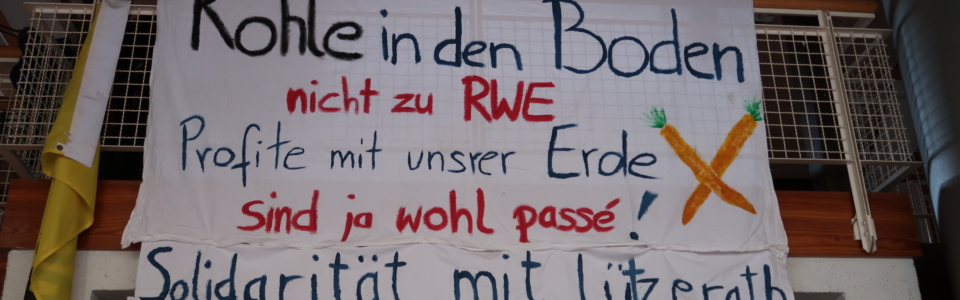 Kohle in den Boden
nicht zu RWE
Profite mit unsrer Erde
sind ja wohl passé!
Solidarität mit Lützerath